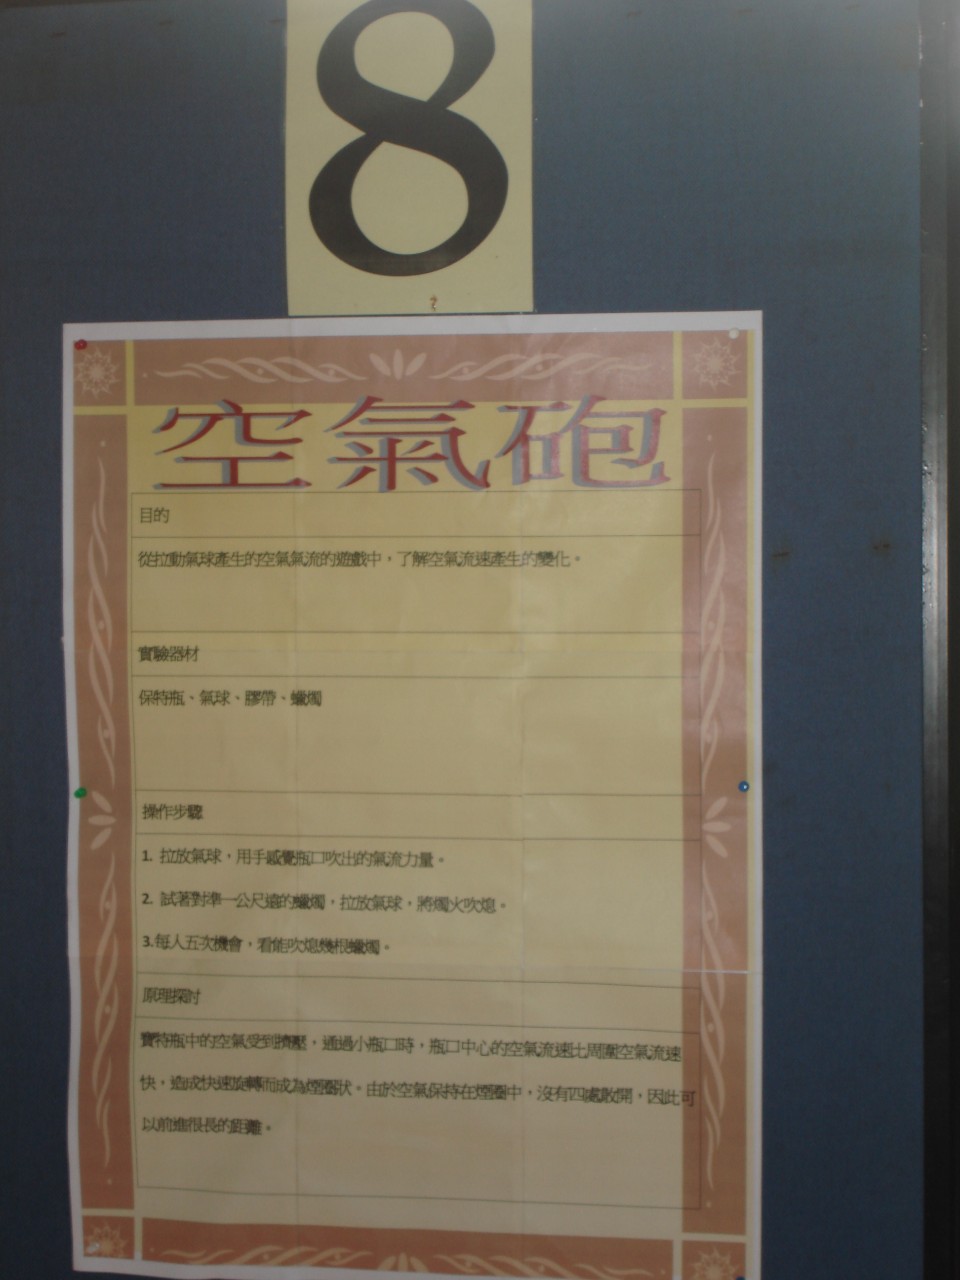 8
空氣砲
目的
從拉動氣球產生的空氣氣流的遊戲中，了解空氣流速產生的變化。
實驗器材
保特瓶、氣球、膠帶、蠟燭
操作步驟
1. 拉放氣球，用手感覺瓶口吹出的氣流力量。
2. 試著對準一公尺遠的蠟燭，拉放氣球，將燭火吹熄。
3.每人五次機會，看能吹熄幾根蠟燭。
原理探討
寶特瓶中的空氣受到擠壓，通過小瓶口時，瓶口中心的空氣流速比周圍空氣流速
快，造成快速旋轉而成為煙圈狀。由於空氣保持在煙圈中，沒有四處散開，因此可
以前進很長的距離。